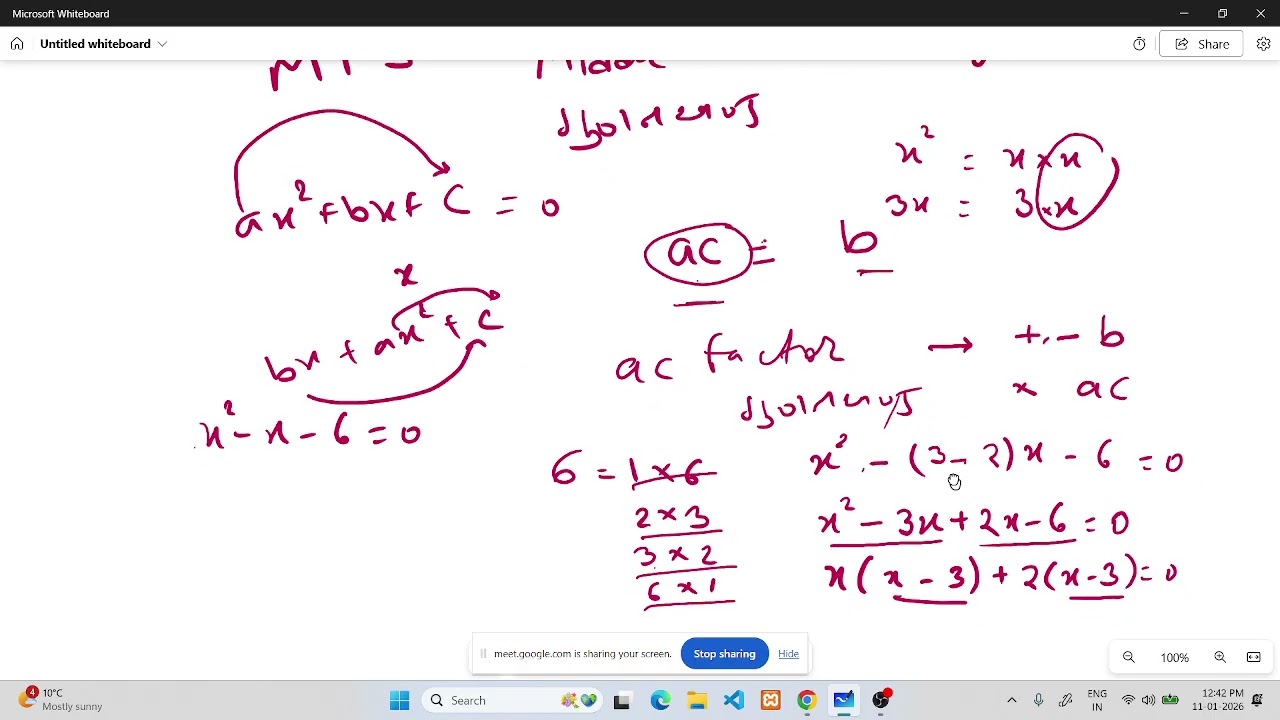 Microsoft Whiteboard
Untitled whiteboard
Share
ax² + bx + C = 0
x² = x × x
3x = 3 × x
ac = b
x
bx + ax² + C
ac factor → +, - b
× ac
x² - x - 6 = 0
6 = 1 × 6
2 × 3
3 × 2
6 × 1
x² - (3 - 2)x - 6 = 0
x² - 3x + 2x - 6 = 0
x(x - 3) + 2(x - 3) = 0
meet.google.com is sharing your screen.
Stop sharing
Hide
100%
4
10°C
Mostly sunny
Search
ENG
IN
12:42 PM
11-01-2026